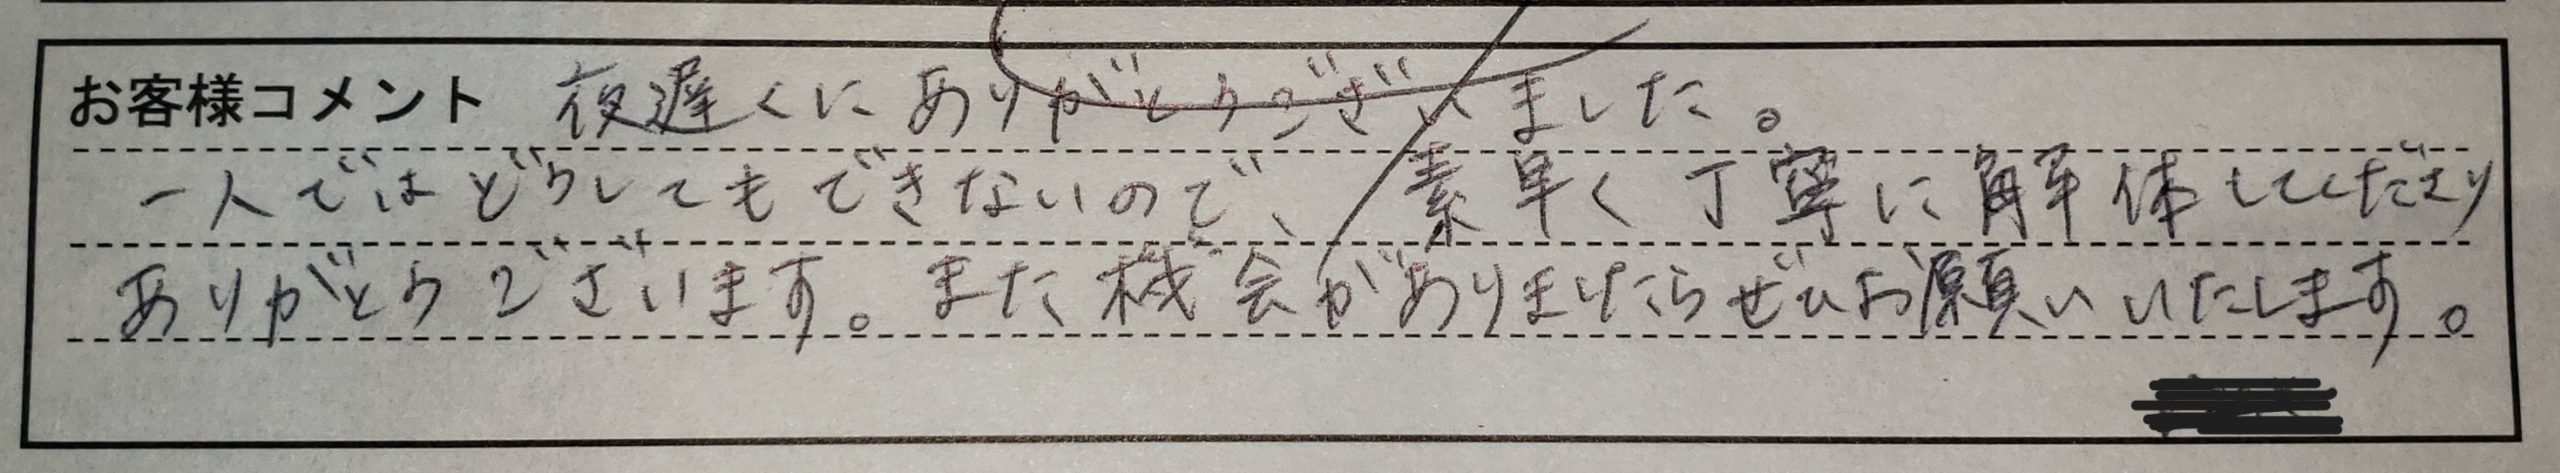 お客様コメント 夜遅くにありがとうございました。
一人ではどうしてもできないので、素早く丁寧に解体してくださり
ありがとうございます。また機会がありましたらぜひお願いいたします。